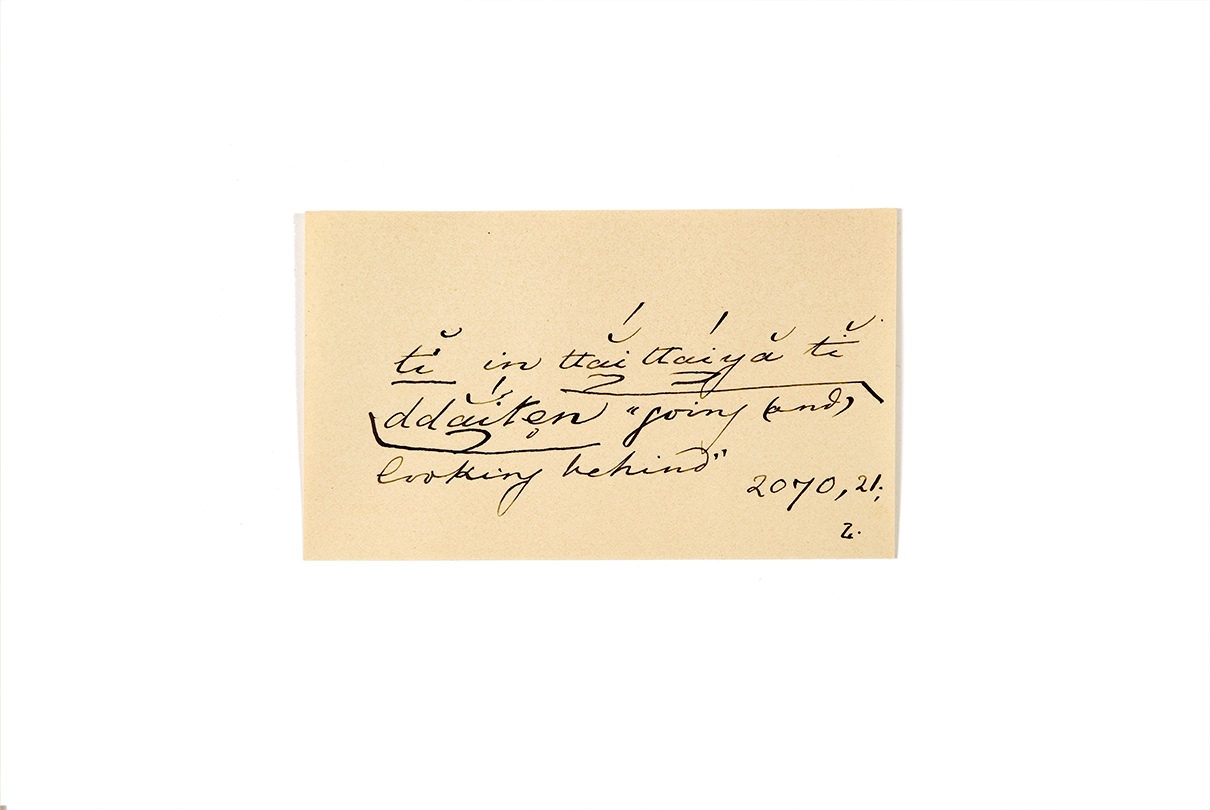 tĭ in ttắi ttáiyă tĭ
ddắiten "going (and)
looking behind"
2070, 21;
2.